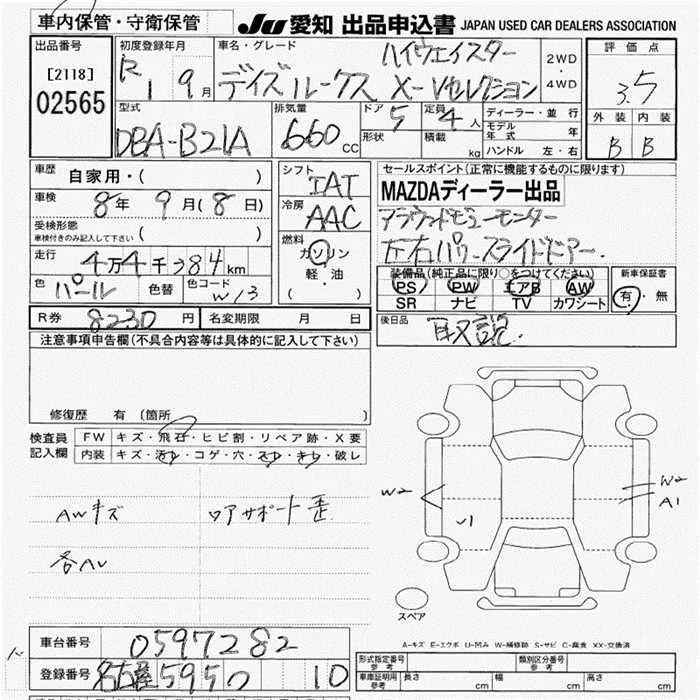 車内保管・守衛保管
JU 愛知 出品申込書 JAPAN USED CAR DEALERS ASSOCIATION
出品番号
[2118]
02565
初度登録年月
R1 9月
車名・グレード
ハイウェイスター
デイズルークス X-Vセレクション
2WD
・
4WD
評価点
3.5
外装 内装
B B
型式
DBA-B21A
排気量
660 CC
ドア 5
形状
定員 4人
積載 kg
ディーラー・並行
モデル年式 年
ハンドル 左・右
車歴 自家用・( )
車検 8年 9月(8日)
受検形態
車検付きのみ記入して下さい ( )
走行 4万4千984km
色 パール 色替 色コード W13
シフト IAT
冷房 AAC
燃料
ガソリン
軽・油
( )
セールスポイント(正常に機能するものに限ります)
MAZDAディーラー出品
アラウンドビューモニター
左右パワースライドドアー.
装備品(純正品に限り○をつけてください)
PS PW エアB AW
SR ナビ TV カワシート
新車保証書
有・無
R券 8230円 名変期限 月 日
後日品
取説.
注意事項申告欄(不具合内容等は具体的に記入して下さい)
修復歴 有 (箇所 )
検査員
記入欄
FW キズ・飛石・ヒビ割・リペア跡・X要
内装 キズ・汚レ・コゲ・穴・スレ・キレ・破レ
AWキズ ロアサポート歪
各AU
W2
W2
A1
スペア
A-キズ E-エクボ U-凹み W-補修跡 S-サビ C-腐食 XX-交換済
車台番号 0597282
登録番号 名古屋595 10
形式指定番号
参考
類別区分番号
参考
車庫証明用
参考
長さ cm 幅 cm 高さ cm